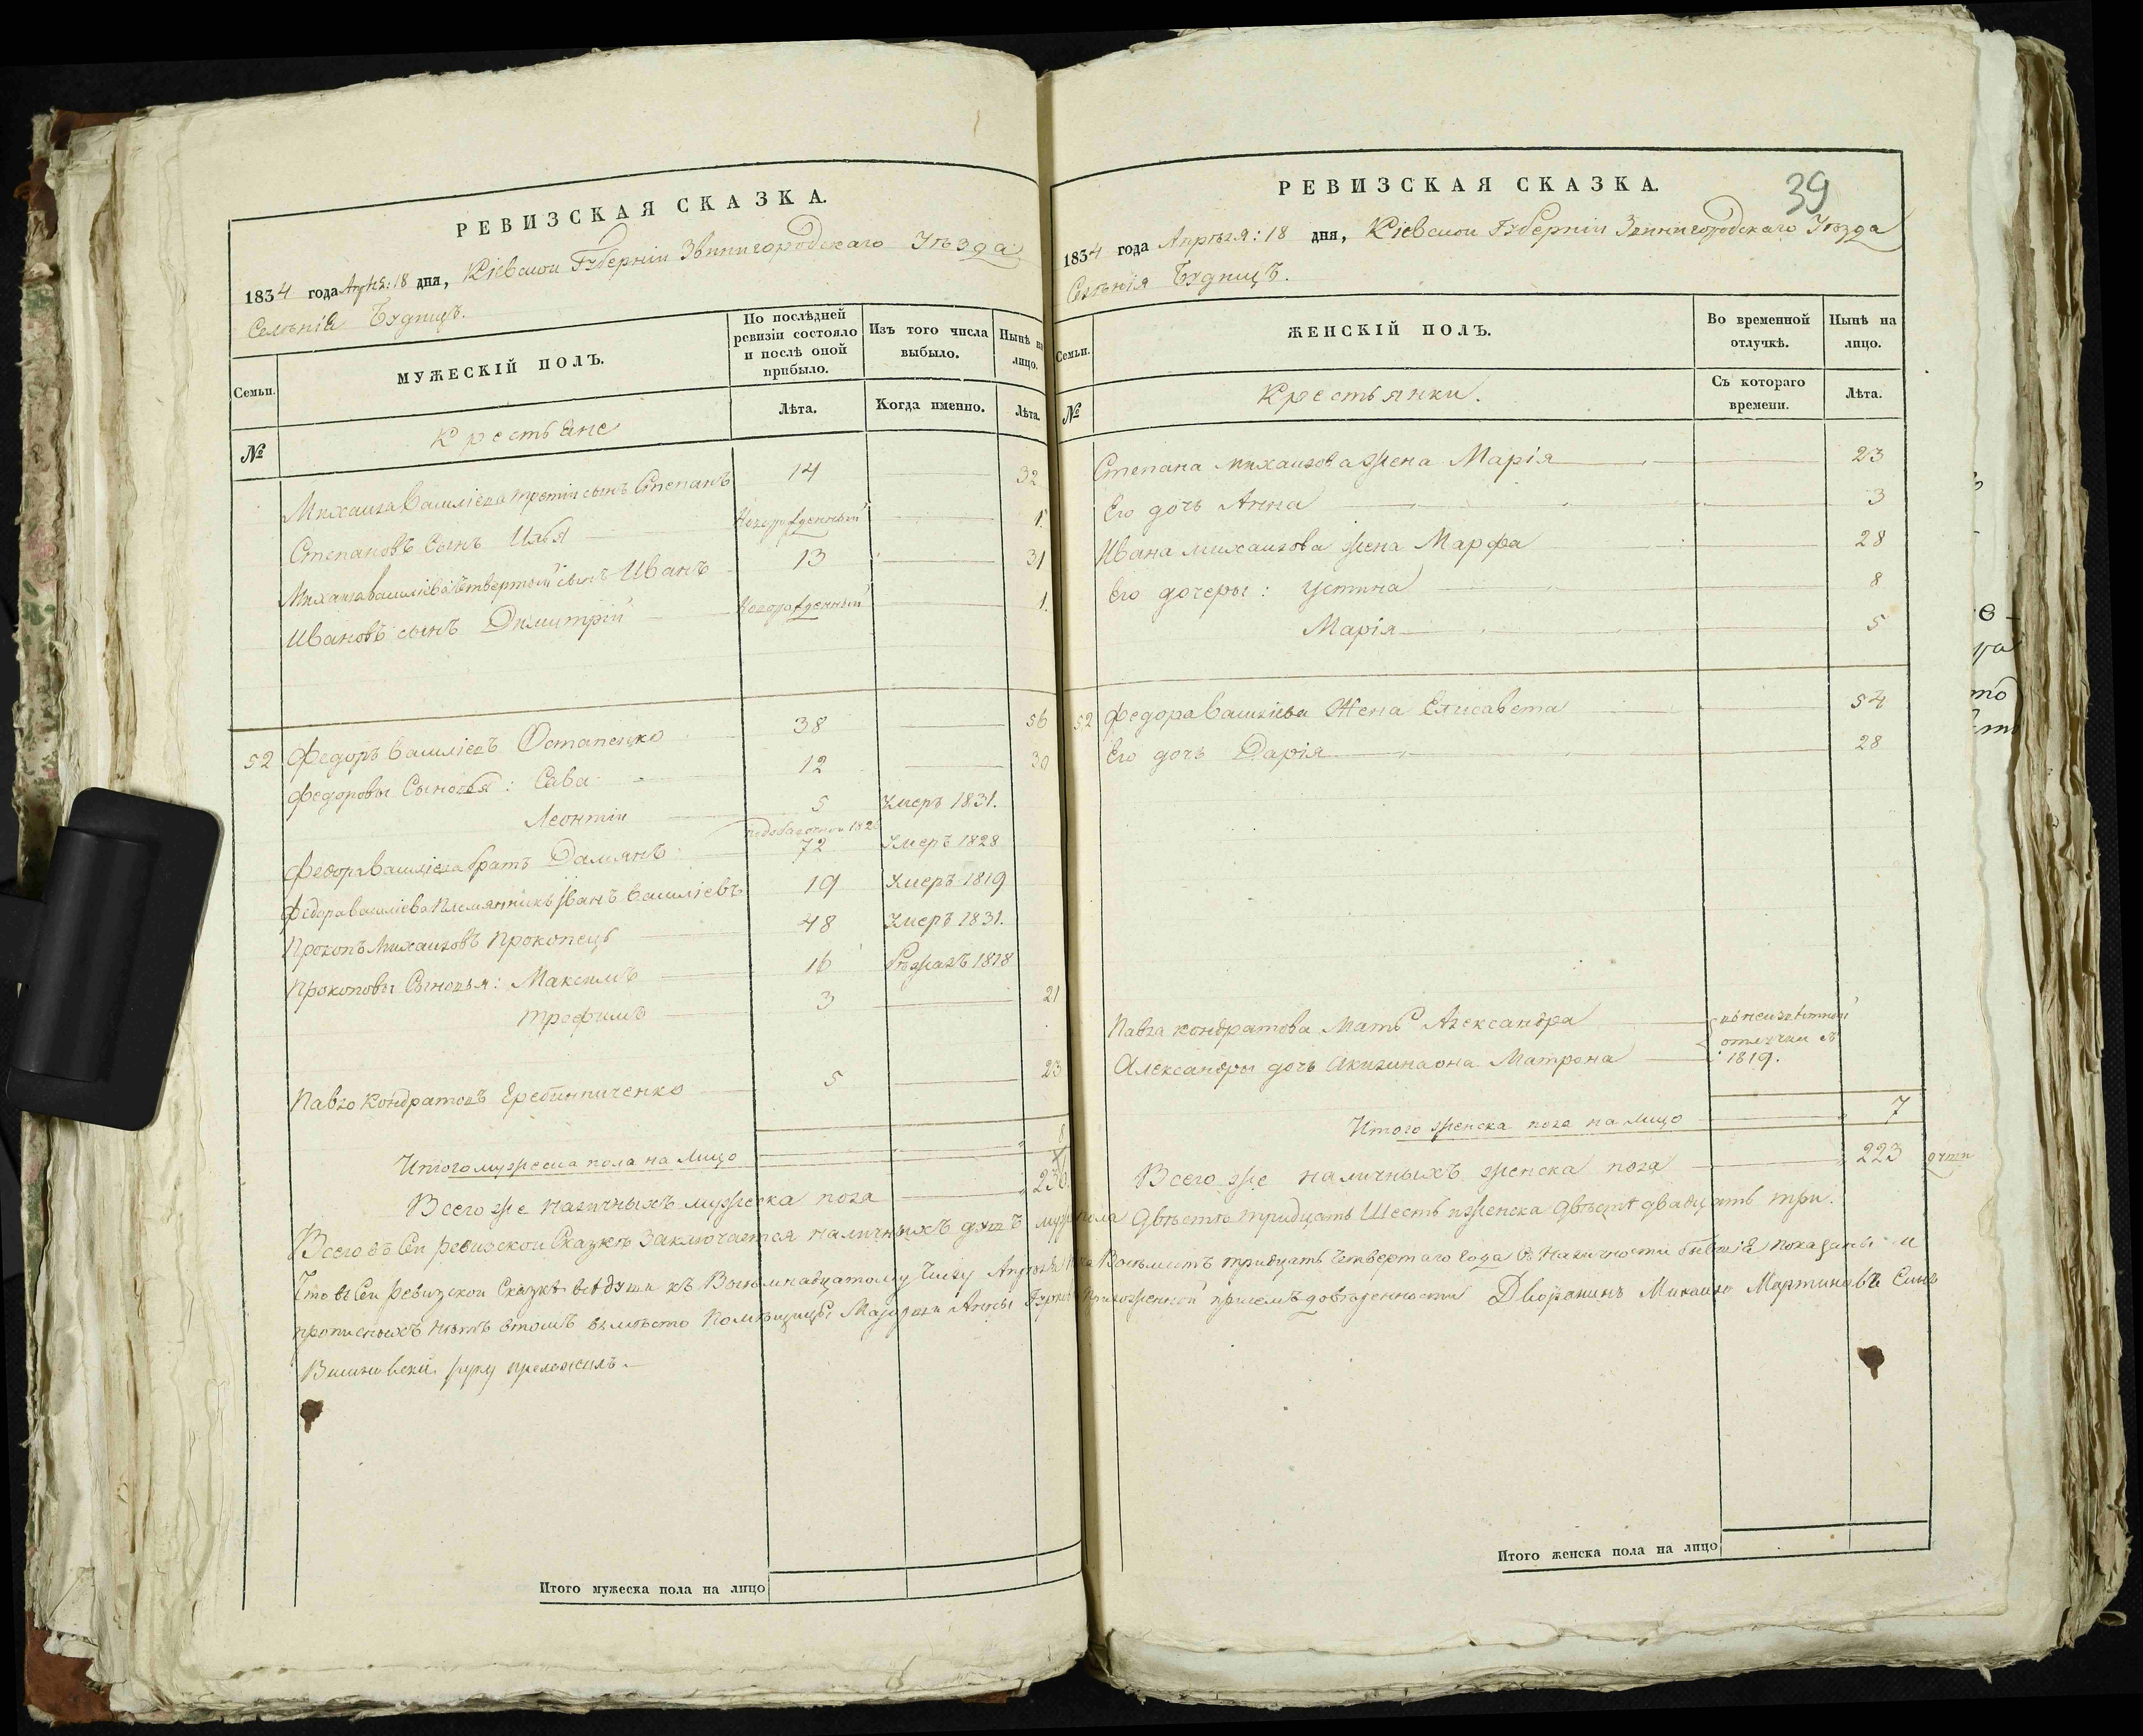 РЕВИЗСКАЯ СКАЗКА.
1834 года Апрѣля: 18 дня, Кіевской Губерніи Звинигородскаго Уѣзда
Селѣнія Будищъ.
Семьи.
МУЖЕСКІЙ ПОЛЪ.
По послѣдней ревизіи состояло и послѣ оной прибыло.
Изъ того числа выбыло.
Нынѣ на лицо.
№
Крестьяне
Лѣта.
Когда именно.
Лѣта.
Михаила Василіева третій сынъ Степанъ 14 32
Степановъ Сынъ Илья Новорожденный 1.
Михаила Василіева Четвертый сынъ Иванъ 13 31
Ивановъ сынъ Димитрій Новорожденный 1.
52 Федоръ Василіевъ Остапенко 38 56
Федоровы Сыновья: Сава 12 30
Леонтій 5 Умеръ 1831.
Федора Василіева братъ Даміянъ 72 Умеръ 1828
Федора Василіева Племянникъ Иванъ Василіевъ 19 Умеръ 1819
Прокопъ Михаиловъ Прокопецъ 48 Умеръ 1831.
Прокоповы Сыновья: Максимъ 16 1818
Трофимъ 3 21
Павло Кондратовъ 5 23
Итого мужеска пола на Лицо 8
Всего же наличныхъ мужеска пола 236.
РЕВИЗСКАЯ СКАЗКА.
39
1834 года Апрѣля: 18 дня, Кіевской Губерніи Звинигородскаго Уѣзда
Селѣнія Будищъ.
Семьи.
ЖЕНСКІЙ ПОЛЪ.
Во временной отлучкѣ.
Нынѣ на лицо.
№
Крестьянки.
Съ котораго времени.
Лѣта.
Степана Михаилова Жена Марія 23
Его дочь Анна 3
Ивана Михаилова Жена Марфа 28
Его дочеры: Устина 8
Марія 5
52 Федора Василіева Жена Елисавета 54
Его дочь Дарія 28
Павла Кондратова Мать Александра въ неизвѣстной
отлучки съ
Александры дочь Акилина она Матрона 1819.
Итого женска пола на лицо 7
Всего же наличныхъ женска пола 223 души
Всего въ Сей ревизской Сказкѣ Заключается наличныхъ душъ муж: пола двѣстѣ тридцать Шесть и женска двѣстѣ двадцать три.
Что въ Сей Ревизской Сказкѣ всѣ души къ Восемнадцатому Числу Апрѣля Восемсотъ тридцать Четвертаго Года въ Наличности бывшіе показаны и
прописныхъ нѣтъ втомъ вмѣсто Помѣщицы Анны приложенной присемъ довѣренности Дворянинъ Михаилъ Мартиновъ Сынъ
руку приложилъ.
Итого мужеска пола на лицо
Итого женска пола на лицо